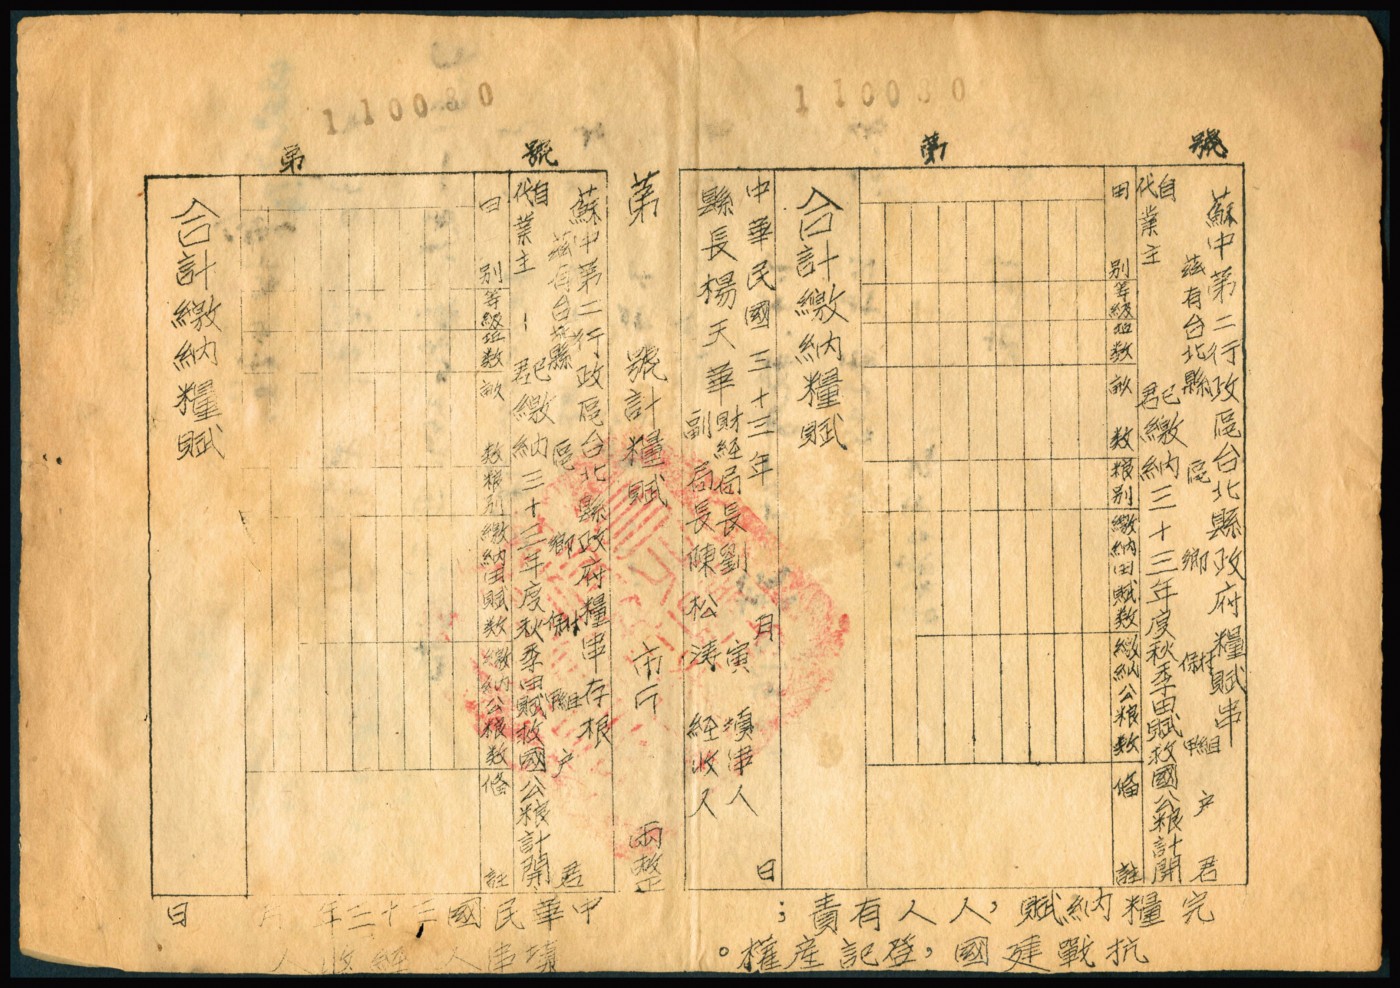 110080
110080
第 號
蘇中第二行政區台北縣政府糧賦串
茲有台北縣 區 鄉 保村 甲組 户 君
自代業主 君已繳納三十三年度秋季田賦救國公粮計開
田別 等級 坵数 畝数 粮別 繳納田賦数 繳納公粮数 備註
合計繳納糧賦
中華民國三十三年 月 日
縣長楊天華 財經局長劉寅 填串人
副局長陳松涛 經收人
完糧納賦，人人有責；
抗戰建國，登記産權。
第 號計糧賦 市斤 兩整
弟 號
蘇中第二行政區台北縣政府糧串存根
茲有台北縣 區 鄉 保村 甲組 户 君
自代業主 君已繳納三十三年度秋季田賦救國公粮計開
田別 等級 坵数 畝数 粮別 繳納田賦数 繳納公粮数 備註
合計繳納糧賦
中華民國三十三年 月 日
填串人 經收人